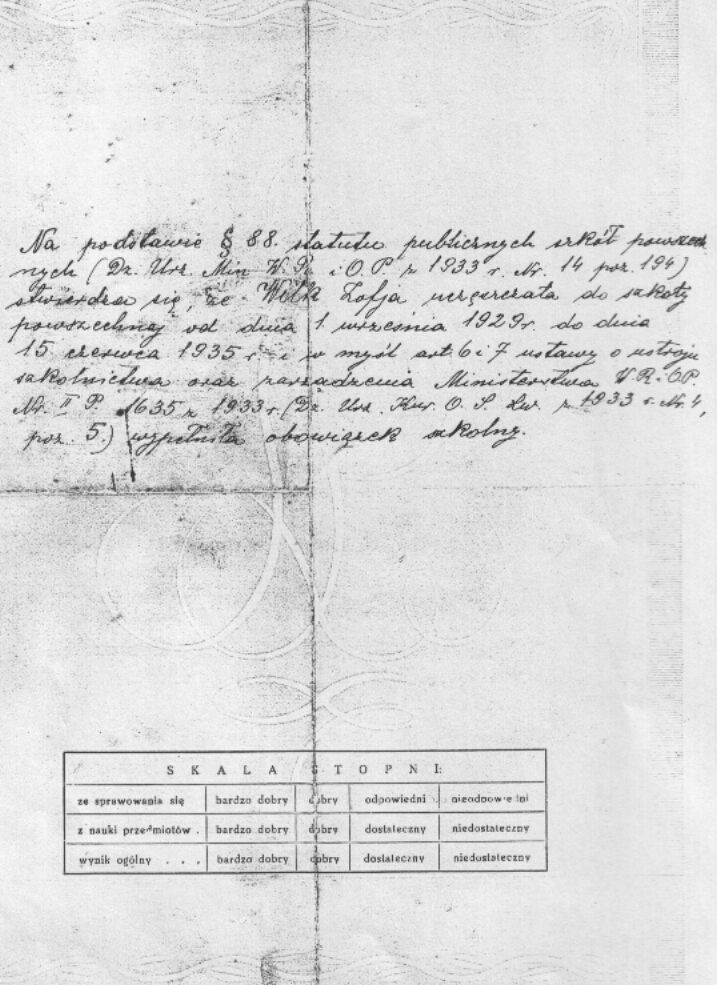 Na podstawie § 88. statutu publicznych szkół powszech
nych (Dz. Urz. Min W. R. i O. P. z 1933 r. Nr. 14 poz. 194)
stwierdza się, że Wilk Zofja uczęszczała do szkoły
powszechnej od dnia 1 września 1929 r. do dnia
15 czerwca 1935 r. i w myśl art. 6 i 7 ustawy o ustroju
szkolnictwa oraz zarządzenia Ministerstwa W. R. i O. P.
Nr. II P. 1635 z 1933 r. (Dz. Urz. Kur. O. S. Lw. z 1933 r. Nr. 4,
poz. 5.) wypełniła obowiązek szkolny.
SKALA STOPNI:
ze sprawowania się bardzo dobry dobry odpowiedni nieodpowiedni
z nauki przedmiotów . bardzo dobry dobry dostateczny niedostateczny
wynik ogólny . . . bardzo dobry dobry dostateczny niedostateczny